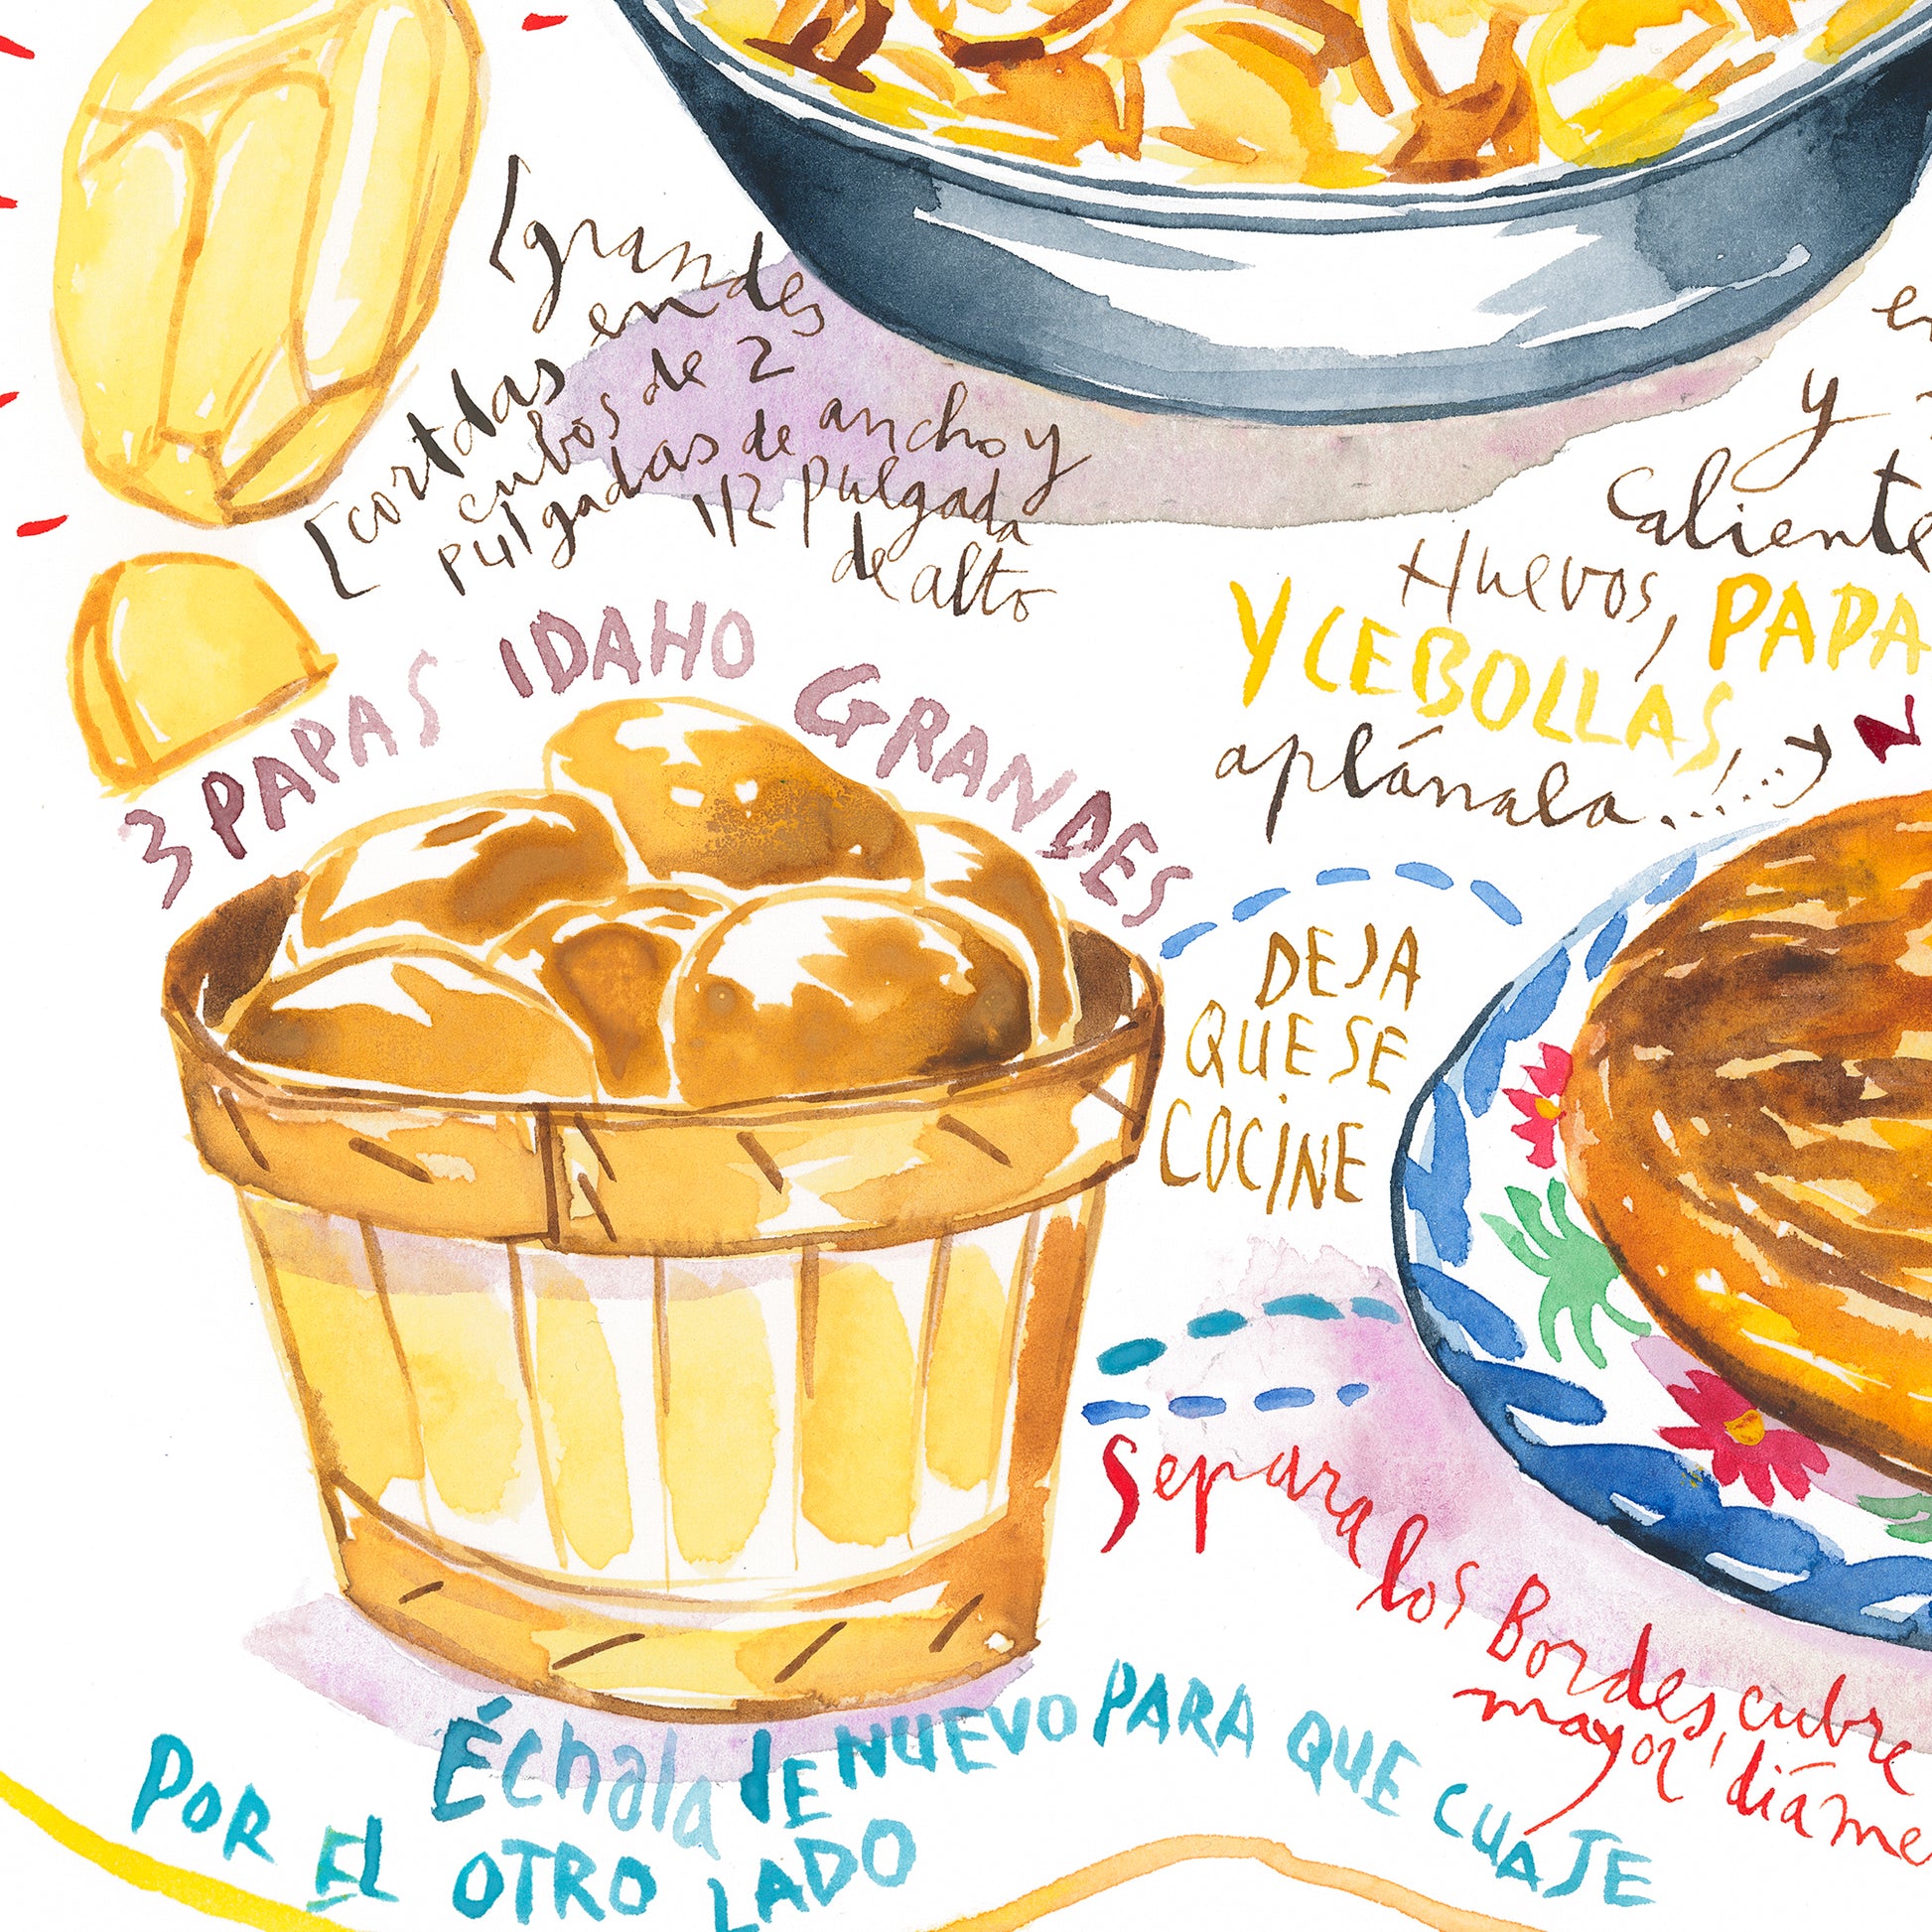 [grandes
en
[cortdas
cubos de 2
pulgadas de ancho y
1/2 pulgada
de alto
3 PAPAS IDAHO GRANDES
y
Caliente
Huevos, PAPA
Y CEBOLLAS,
aplánala.....
DEJA
QUE SE
COCINE
Separa los Bordes, cubre
mayor diáme
Échala de NUEVO PARA QUE CUAJE
POR EL OTRO LADO